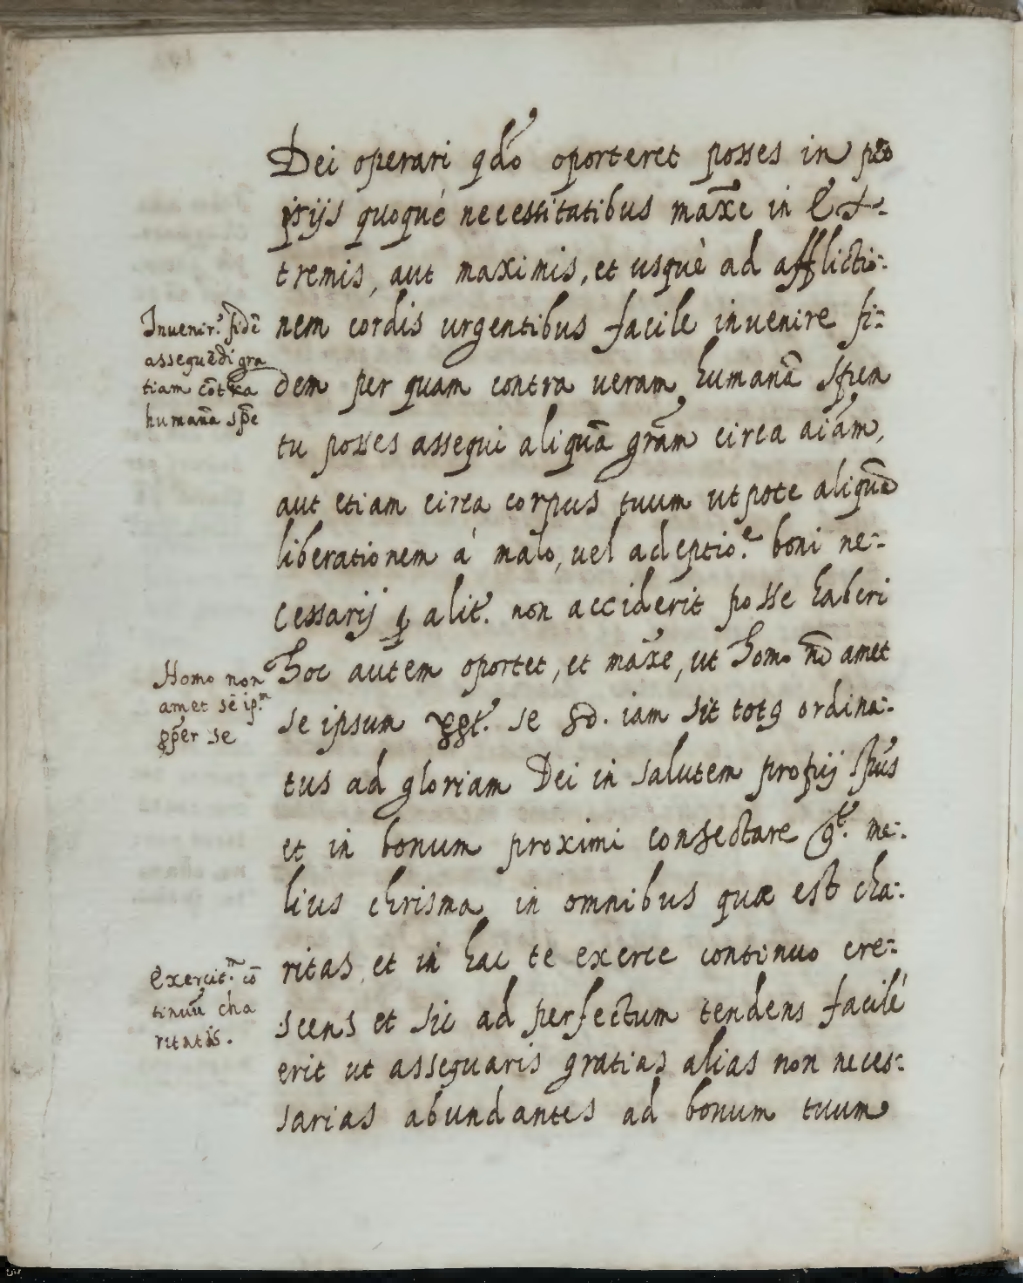 Dei operari qdõ oporteret posses in pro
prijs quoquè necessitatibus maxẽ in Ex-
tremis, aut maximis, et usquè ad afflictio:
nem cordis urgentibus facile invenire fi:
dem per quam contra ueram humanã spem
tu posses assequi aliquã grãm circa aĩam,
aut etiam circa corpus tuum utpote aliquã
liberationem à malo, uel adeptio.e boni ne:
cessarij q alit. non acciderit posse haberi
hoc autem oportet, et maxẽ, ut homo nõ amet
se ipsum se sd. iam sit totq ordina:
tus ad gloriam Dei in salutem proprij spũs
et in bonum proximi consectare me:
lius chrisma in omnibus quæ est cha:
ritas, et in hac te exerce continuo cre:
scens et sic ad perfectum tendens facilè
erit ut assequaris gratias alias non neces:
sarias abundantes ad bonum tuum
Invenir. fidẽ
assequẽdi gra
tiam cõtra
humanã spẽ
Homo non
amet sẽ ip.m
ppter se
Exercit.m cõ
tinuũ cha
ritatis.